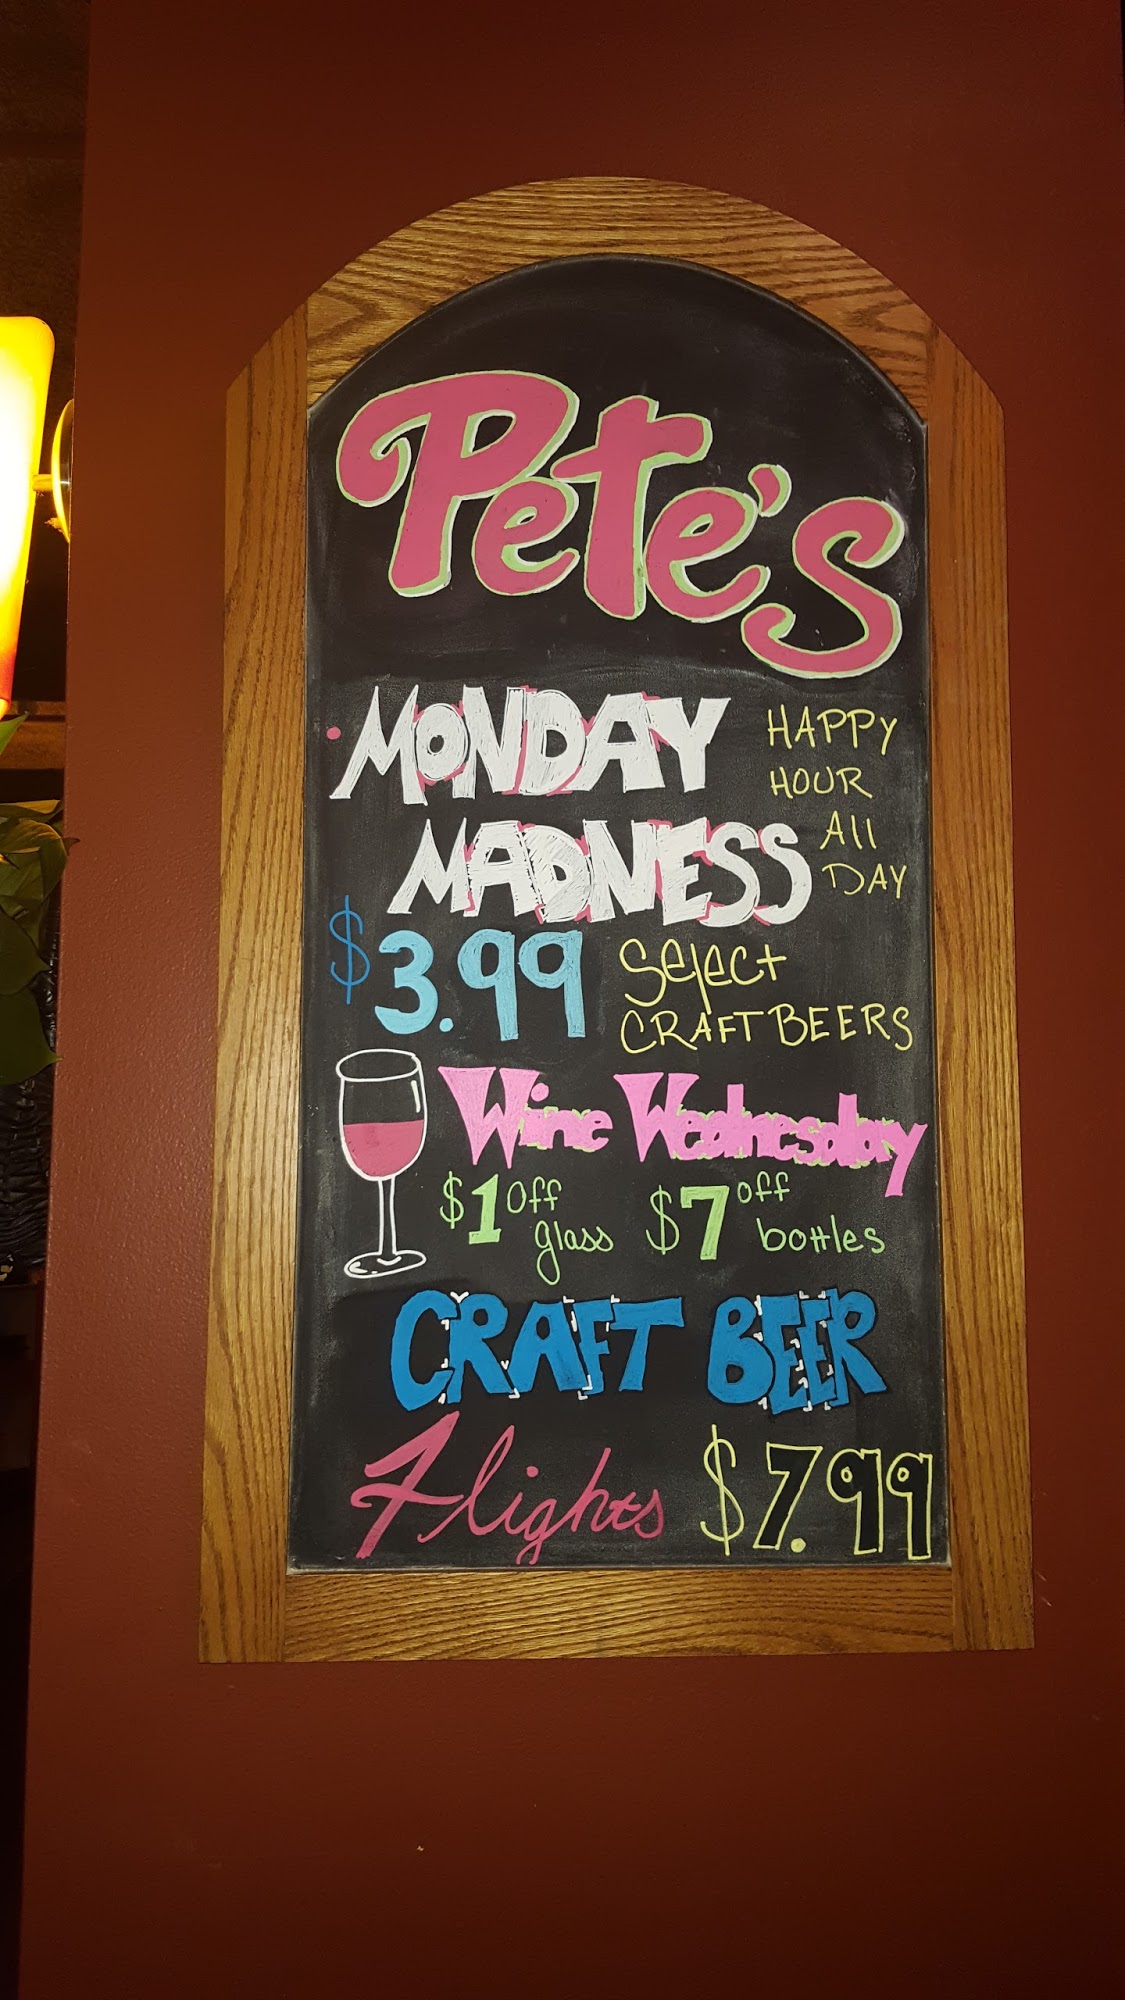 Pete's
MONDAY
MADNESS
HAPPY
HOUR
All
DAY
$3.99 Select
CRAFT BEERS
Wine Wednesday
$1 off glass $7 off bottles
CRAFT BEER
Flights $7.99